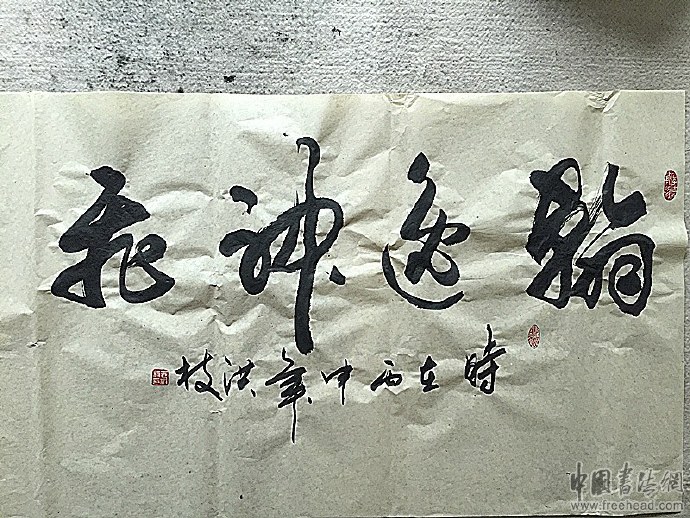 翰逸神飛
時在丙申年洪枝
中国书法网
www.freehead.com